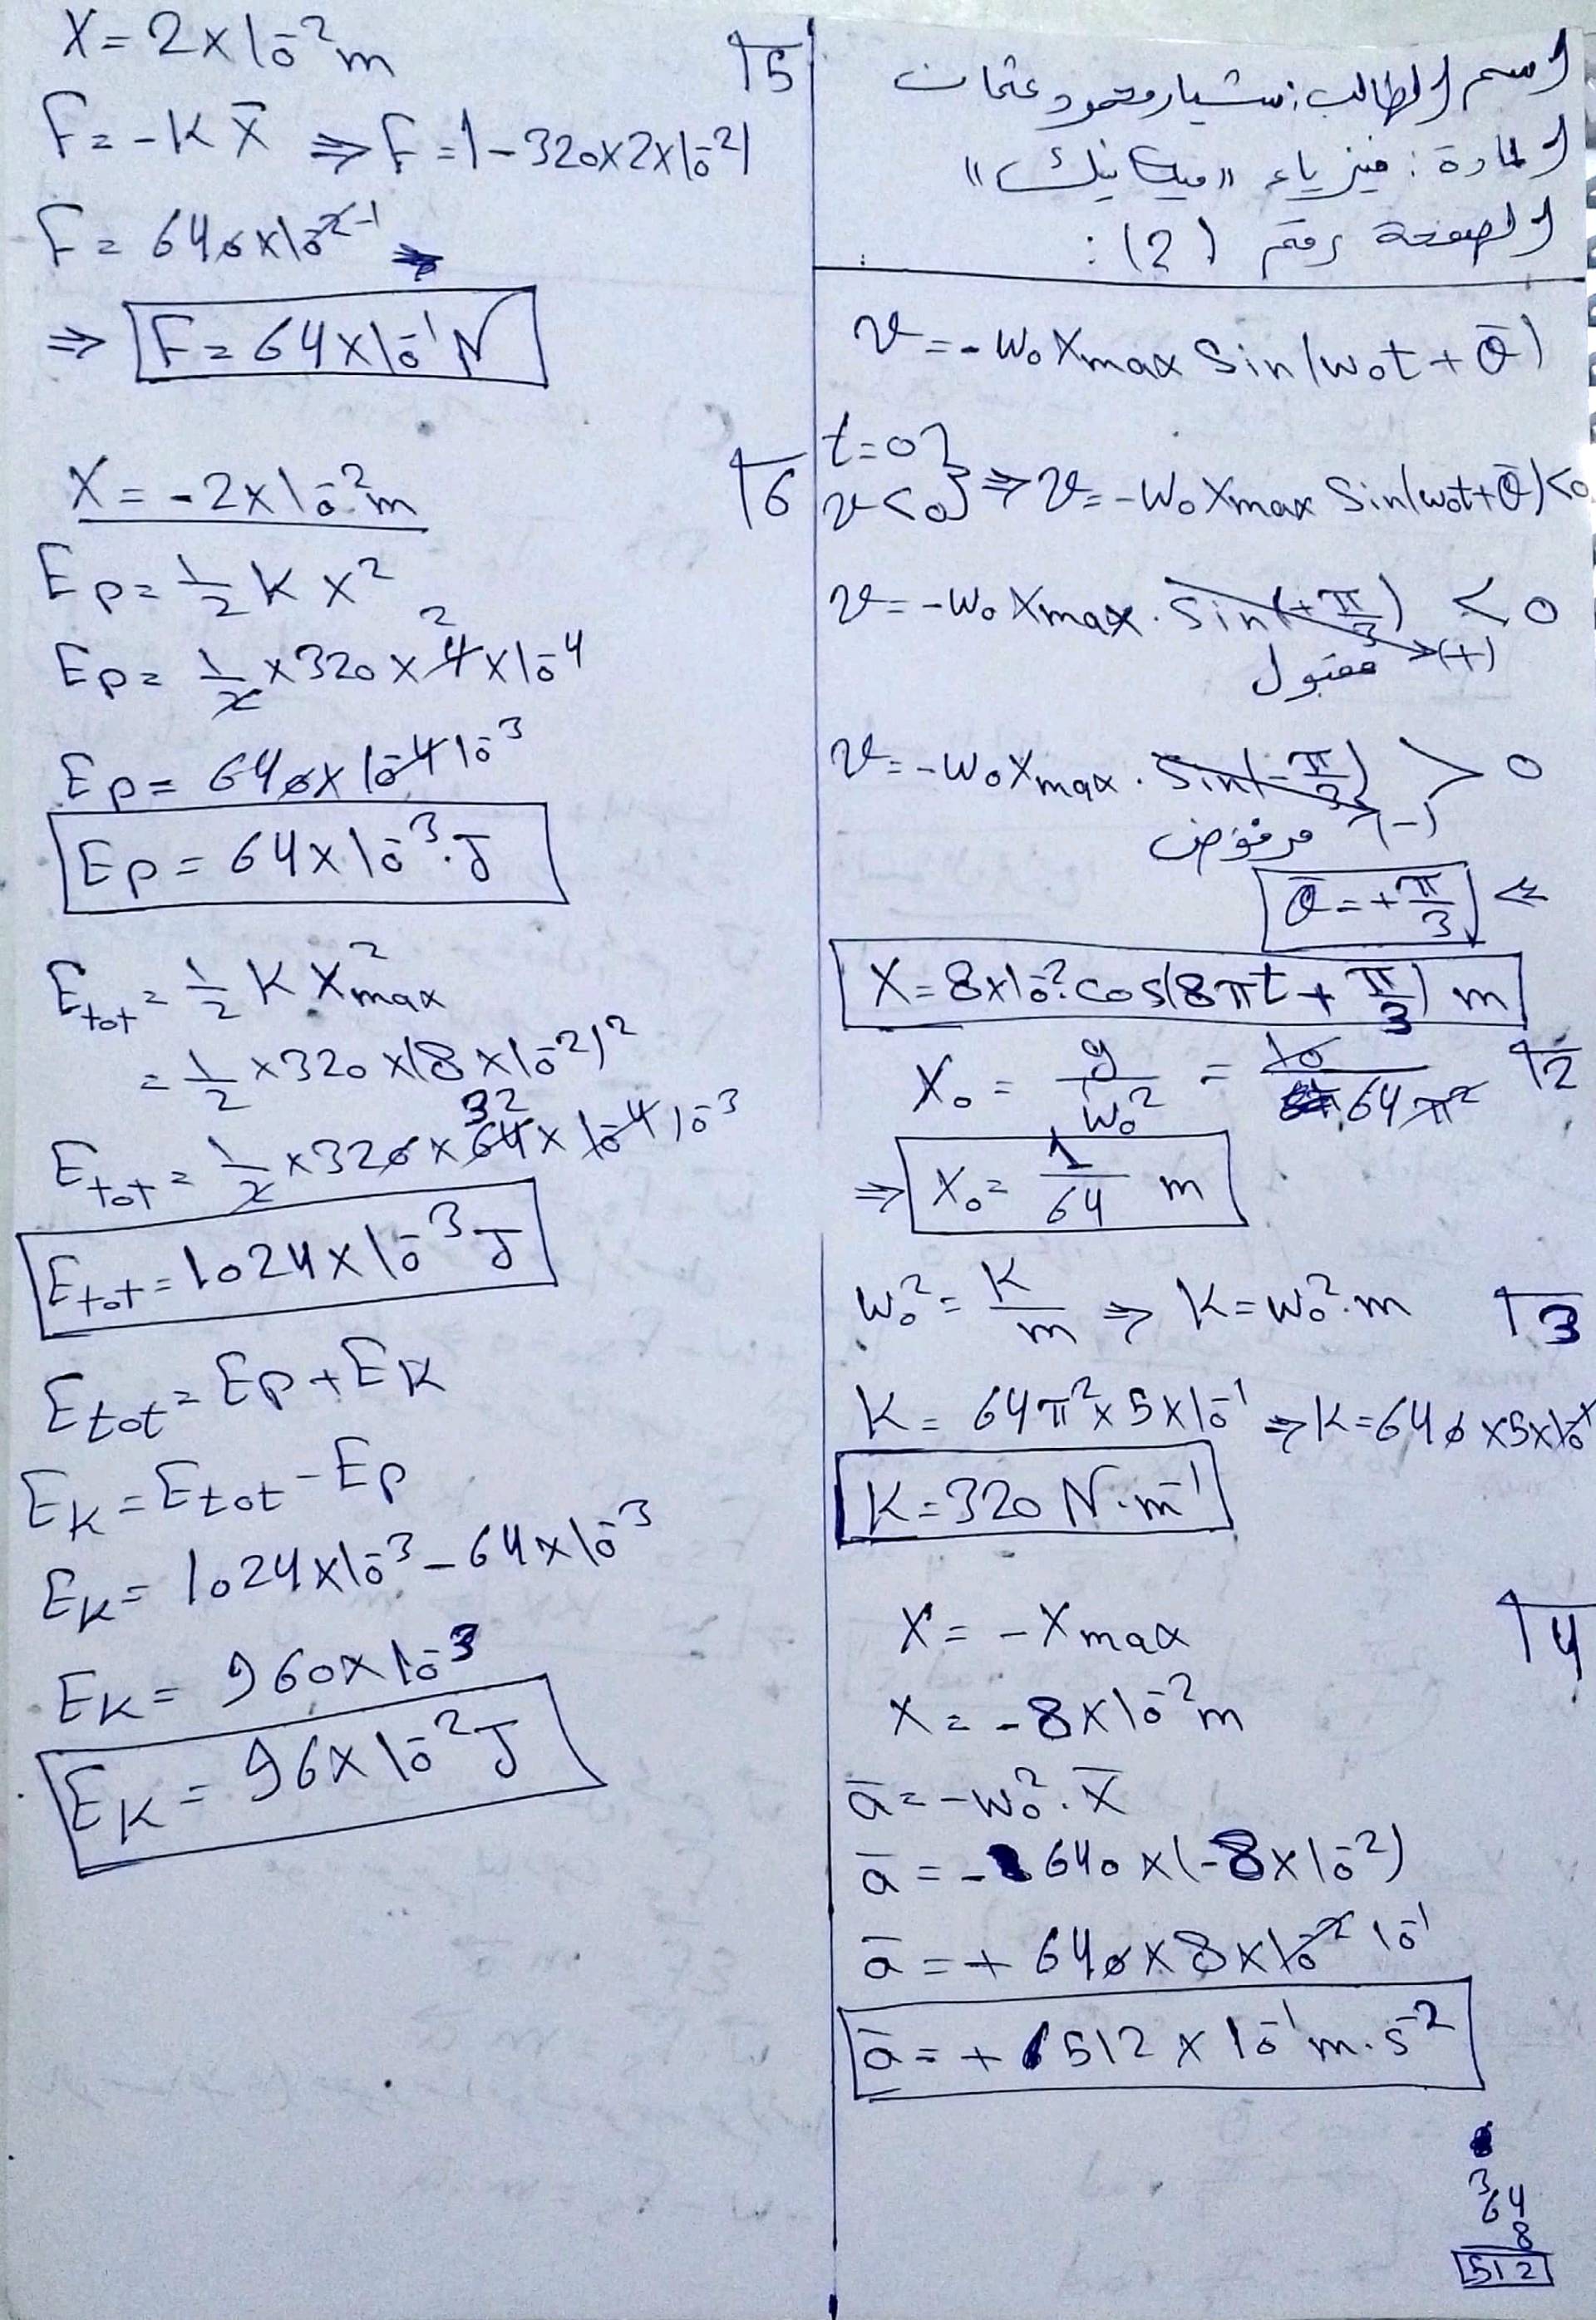 اسم الطالب: ستيار محمود عثمان
المادة: فيزياء "ميكانيك"
الصفحة رقم (2):
v = -w₀ Xmax Sin(w₀t + φ̄)
t=0
v<0 } ⇒ v = -w₀ Xmax Sin(w₀t+φ̄)<0
v = -w₀ Xmax . Sin(+π/3) < 0
مقبول (+)
v = -w₀ Xmax . Sin(-π/3) > 0
مرفوض (-)
φ̄ = +π/3 ⇐
X = 8×10⁻² cos(8πt + π/3) m
X₀ = g/w₀² = 10/64π² 2
⇒ X₀ = 1/64 m
w₀² = K/m ⇒ K = w₀².m 3
K = 64π² × 5×10⁻¹ ⇒ K = 640 × 5×10⁻¹
K = 320 N.m⁻¹
X = -Xmax 4
X = -8×10⁻² m
ā = -w₀² . X̄
ā = -640 × (-8×10⁻²)
ā = + 640 × 8 × 10⁻² 10⁻¹
ā = + 512 × 10⁻¹ m.s⁻²
3
64
8
512
X = 2×10⁻² m 5
F = -K X̄ ⇒ F = |-320×2×10⁻²|
F = 640×10⁻² ⁻¹
⇒ F = 64×10⁻¹ N
X = -2×10⁻² m 6
Ep = 1/2 K X²
Ep = 1/2 × 320 × 4 2 × 10⁻⁴
Ep = 640 × 10⁻⁴ 10⁻³
Ep = 64×10⁻³ . J
Etot = 1/2 K X²max
= 1/2 × 320 × (8×10⁻²)²
Etot = 1/2 × 320 × 64 32 × 10⁻⁴ 10⁻³
Etot = 1024×10⁻³ J
Etot = Ep + EK
EK = Etot - Ep
EK = 1024×10⁻³ - 64×10⁻³
EK = 960×10⁻³
EK = 96×10⁻² J